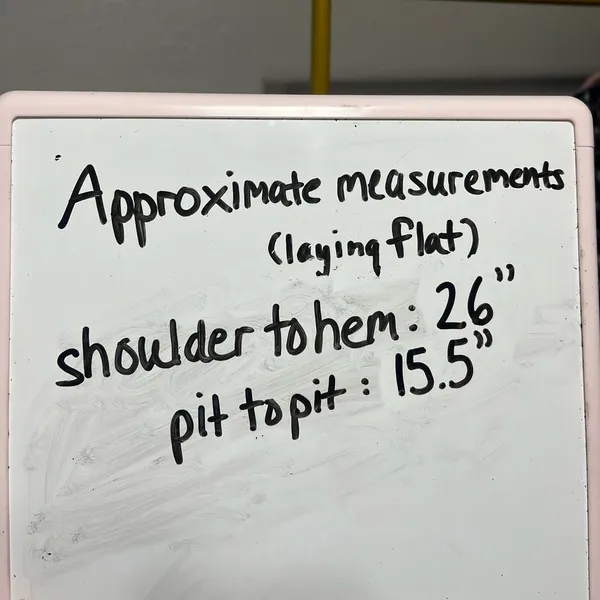 Approximate measurements
(laying flat)
shoulder to hem: 26"
pit to pit: 15.5"